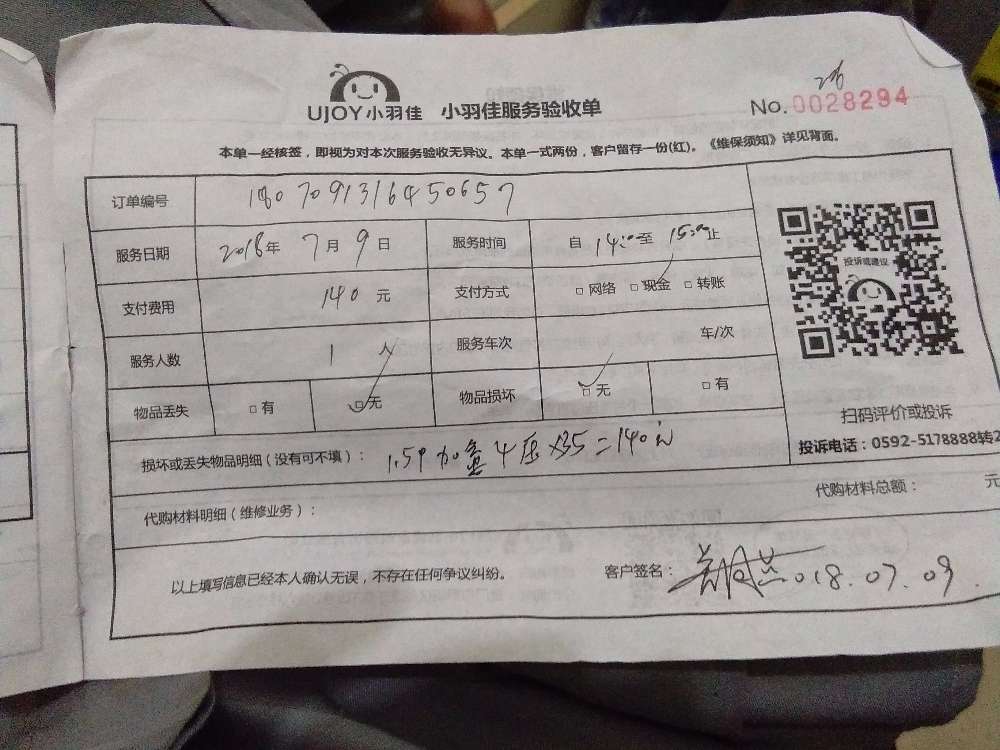 26
UJOY小羽佳 小羽佳服务验收单 No.0028294
本单一经核签，即视为对本次服务验收无异议。本单一式两份，客户留存一份(红)。《维保须知》详见背面。
订单编号 180709131645065​7
服务日期 2018年 7月 9日 服务时间 自 14:00至 15:00止
支付费用 140 元 支付方式 □网络 □现金 □转账
服务人数 1 人 服务车次 车/次
物品丢失 □有 □无 物品损坏 □无 □有
投诉或建议
扫码评价或投诉
投诉电话：0592-5178888转2
损坏或丢失物品明细（没有可不填）： 1.5P 加 4压 X35=140元
代购材料明细（维修业务）： 代购材料总额： 元
以上填写信息已经本人确认无误，不存在任何争议纠纷。 客户签名： 018.07.09